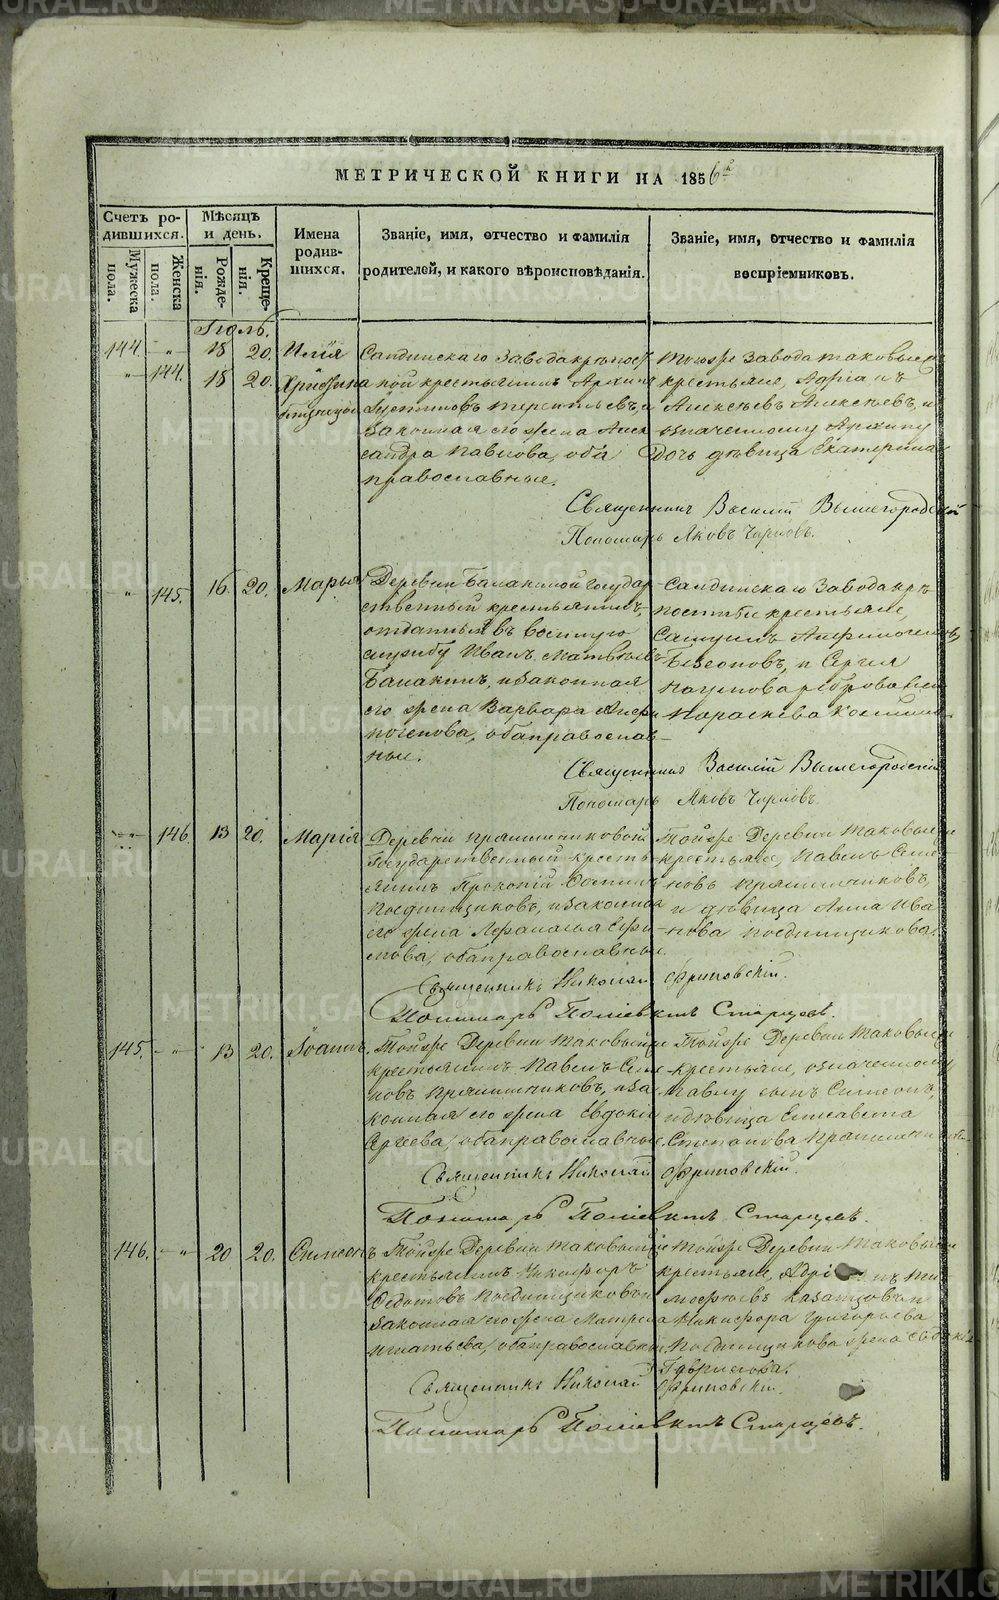 МЕТРИЧЕСКОЙ КНИГИ НА 1856 г.
Счетъ ро-
дившихся.
Мужеска
пола.
Женска
пола.
Мѣсяцъ
и день.
Рожде-
нія.
Креще-
нія.
Имена
родив-
шихся.
Званіе, имя, отчество и фамилія
родителей, и какого вѣроисповѣданія.
Званіе, имя, отчество и фамилія
воспріемниковъ.
Іюль.
144. — „ 18 20. Илія
„ 144. 18 20. Христина
близнецы
Салдинскаго Завода крѣпост
ной крестьянинъ Архипъ
Терентьевъ, и
Законная его жена Алек
сандра Павлова, оба
православные.
Тогоже Завода таковые же
крестьяне, Адріанъ
Алексѣевъ Алексѣевъ, и
означенному Архипу
Дочь дѣвица Екатерина
Священникъ Василій Вышегородской
Пономарь Яковъ Чирковъ.
„ 145. 16 20. Марья
Деревни Балакиной Государ
ственный крестьянинъ,
отданный въ военную
службу Иванъ Матвѣевъ
Балакинъ, и законная
его жена Варвара Анфи
ногенова, оба православ-
ные.
Салдинскаго Завода крѣ
постные крестьяне,
Самуилъ Анфиногеновъ
и Сергія
Наумова Реброва жена
Параскева
Священникъ Василій Вышегородскій
Пономарь Яковъ Чирковъ.
— „ — 146 13 20. Марія
Деревни Пряничниковой
Государственный кресть
янинъ Прокопій Осиповъ
Поединщиковъ, и законная
его жена Афанасья Ефи-
мова, оба православные.
Тойже Деревни таковые же
крестьяне, Павелъ Семе-
новъ Пряничниковъ,
и дѣвица Анна Ива
нова Поединщикова.
Священникъ Николай Фриновскій.
Пономарь Поліевктъ Старцевъ.
145. — „ — 13 20. Іоаннъ.
Тойже Деревни таковый же
крестьянинъ Павелъ Семе
новъ Пряничниковъ, и за
конная его жена Евдокія
Сергѣева, оба православные.
Тойже Деревни таковые же
крестьяне, означенному
Павлу сынъ Симеонъ,
и дѣвица Елисавета
Степанова Пряничникова
Священникъ Николай Фриновскій.
Пономарь Поліевктъ Старцевъ.
146. — „ — 20 20. Симеонъ
Тойже Деревни таковый же
крестьянинъ Никифоръ
Федотовъ Поединщиковъ и
законная его жена Матрена
Игнатьева, оба православные.
Тойже Деревни таковые же
крестьяне, Адріанъ Ти
мофѣевъ Казанцовъ и
Никифора Григорьева
Поединщикова жена Евдокія
Гаврилова.
Священникъ Николай Фриновскій.
Пономарь Поліевктъ Старцевъ.
METRIKI.GASO-URAL.RU